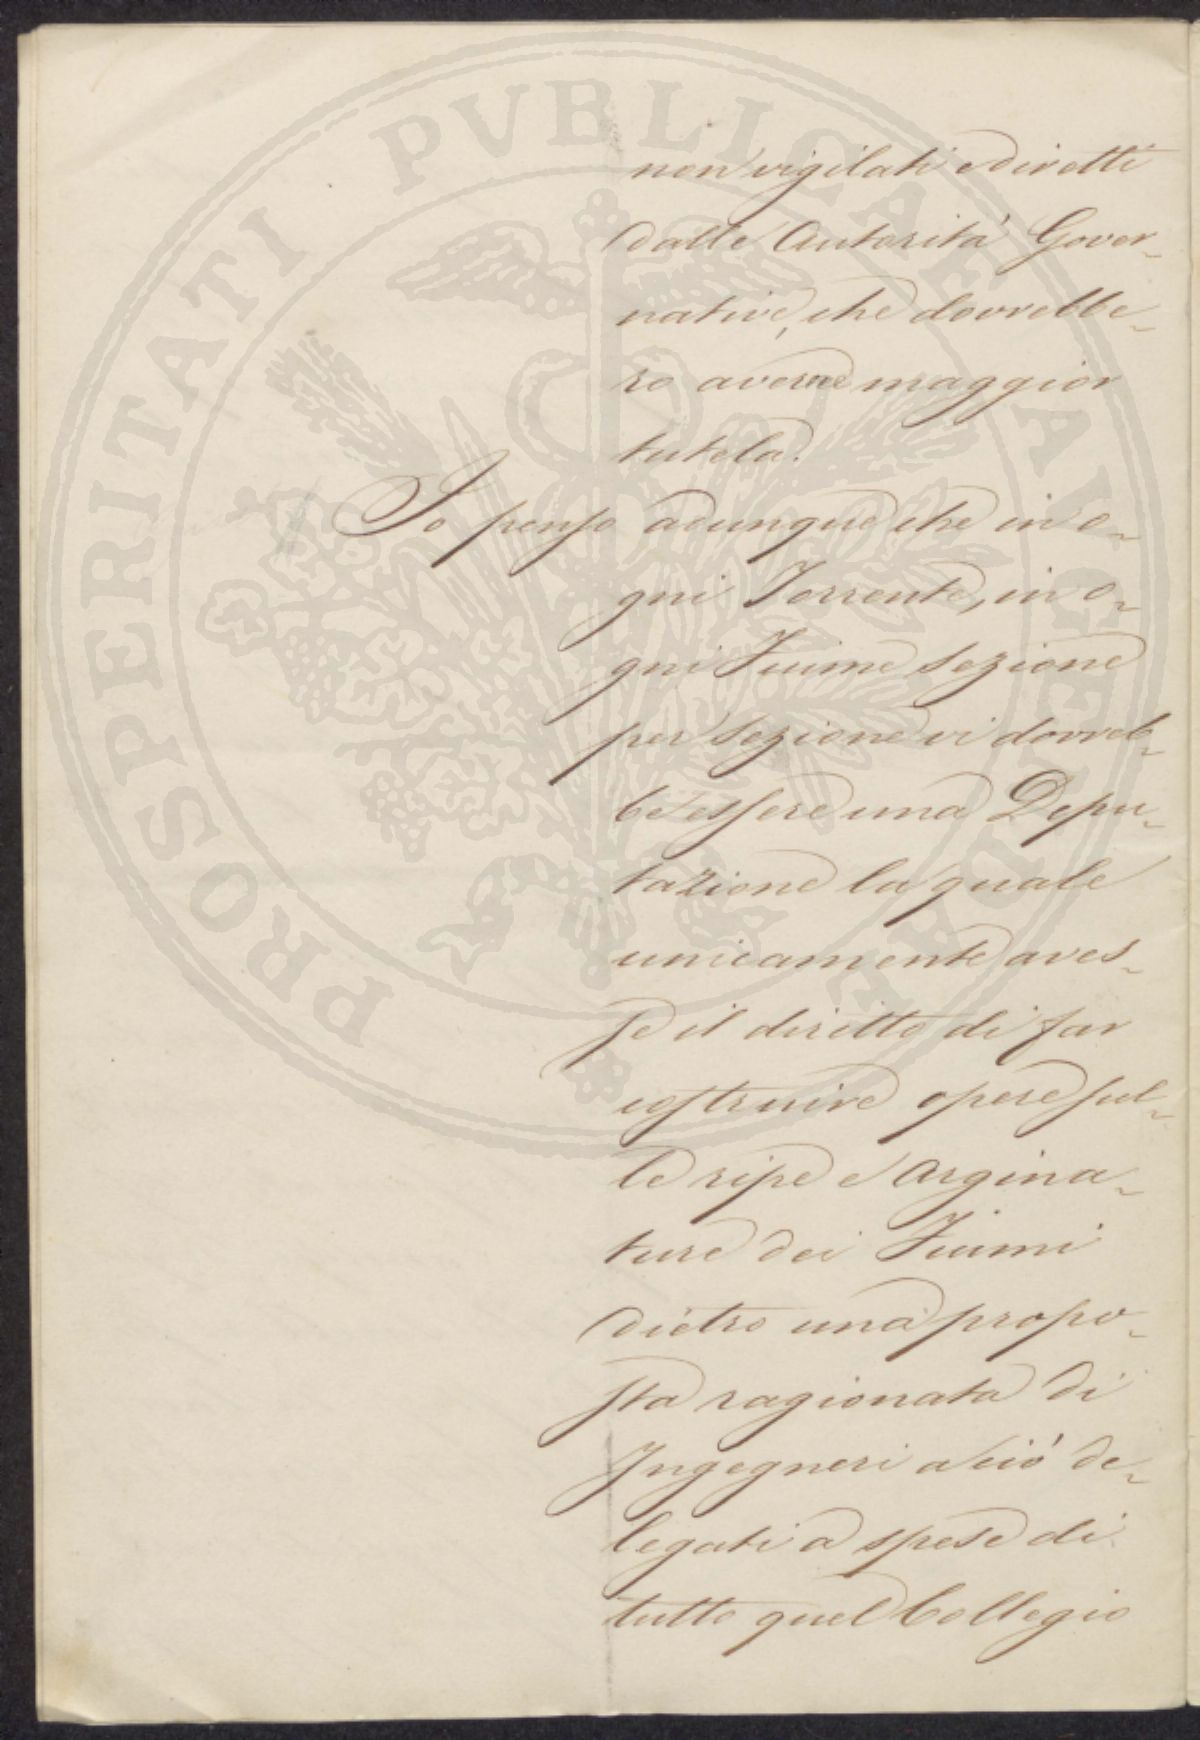 PROSPERITATI PUBLICAE AUGENDAE
non vigilati e diretti
dalle Autorità Gover-
native, che dovrebbe-
ro averne maggior
tutela.
Io penso adunque che in o-
gni Torrente, in o-
gni Fiume sezione
per sezione vi dovreb-
be essere una Depu-
tazione la quale
unicamente aves-
se il diritto di far
costruire opere sul-
le ripe e Argina-
ture dei Fiumi
dietro una propo-
sta ragionata di
Ingegneri a ciò de-
legati a spese di
tutto quel Collegio